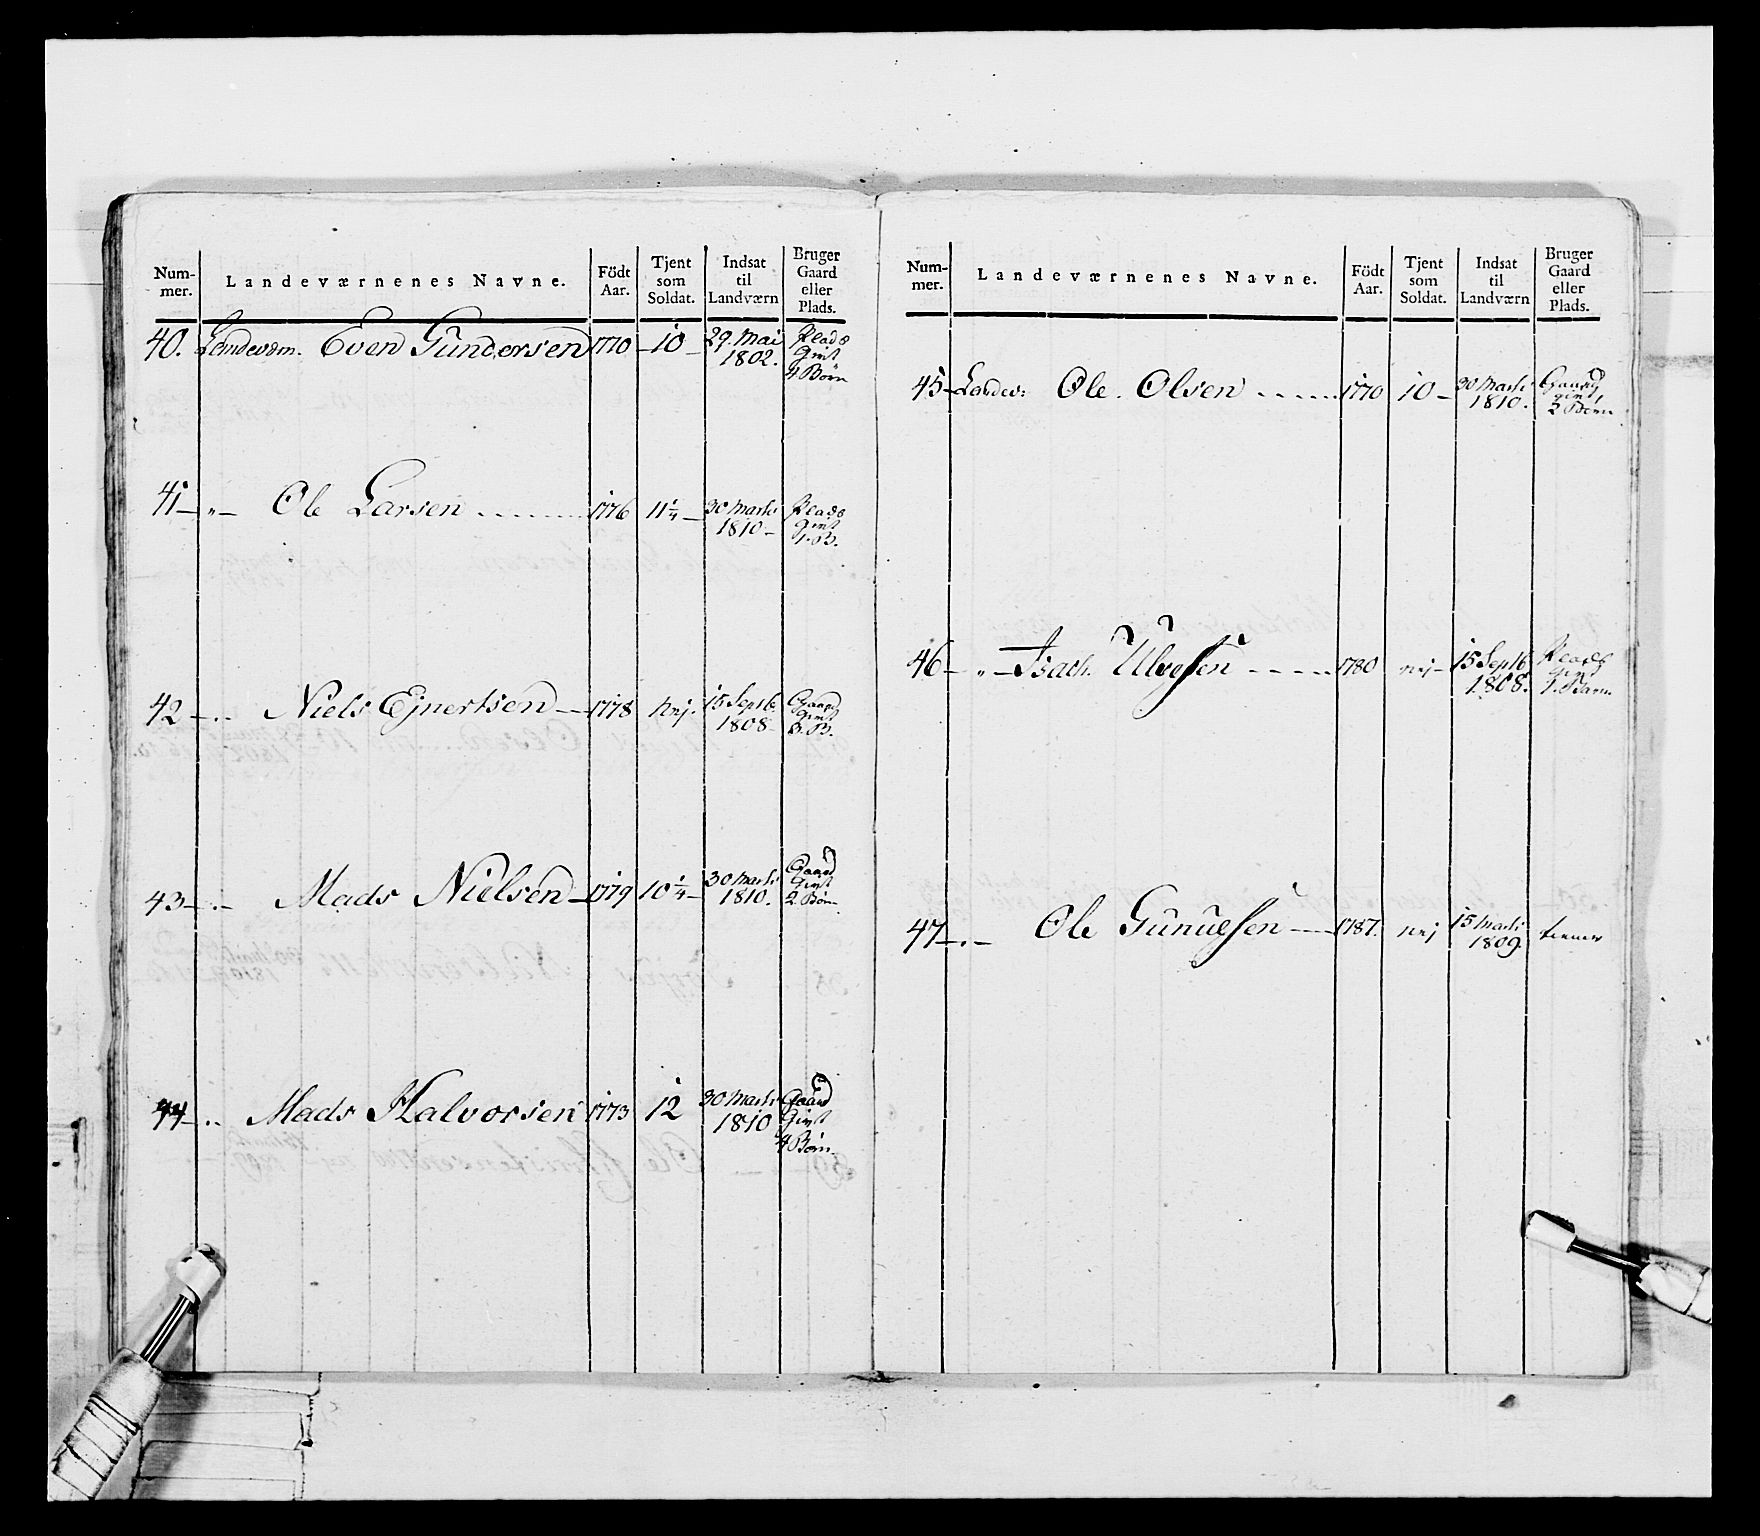 Num-
mer.
Landeværnenes Navne.
Födt
Aar.
Tjent
som
Soldat.
Indsat
til
Landværn
Bruger
Gaard
eller
Plads.
40. Landevom. Even Gundersen 1770 - 10 - 29. Mai
1802.
Plads
Gint
4 Börn
41 - " - Ole Larsen ........ 1776 11 1/4 - 30 Marti
1810 -
Plads
Gint
1. B.
42 - .. Niels Ejnertsen - 1778 Nej. 15 Septb
1808 -
Gaard
Gint
3. B.
43 - .. - Mads Nielsen - 1779 10 1/4 - 30 Marti
1810.
Gaard
Gint
2 Börn
44 - .. Mads Halvorsen 1773 12 30 Marti
1810
Gaard
Gint
4 Börn
Num-
mer.
Landeværnenes Navne.
Födt
Aar.
Tjent
som
Soldat.
Indsat
til
Landværn
Bruger
Gaard
eller
Plads.
45 - Landev: Ole. Olsen ...... 1770 10 - 30 Marti
1810.
Gaard
gint
2 Börn
46 - " - Isach Ulvessen - - - - 1780 nej - 15 Septb
1808.
Plads
Gint
1. Barn
47 - . - Ole Gunuessen - 1787. nej 15 Marti
1809.
tiener